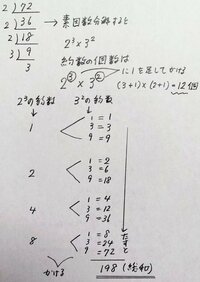 2)72
2)36 → 素因数分解すると
2)18
3)9 2³×3²
3
約数の個数は
2³×3² に1を足してかける
(3+1)×(2+1)=12個
2³の約数 3²の約数
1 1=1
3=3
9=9
2 1=2
3=6
9=18
4 1=4
3=12
9=36
8 1=8
3=24
9=72
たすと
かける 198(総和)